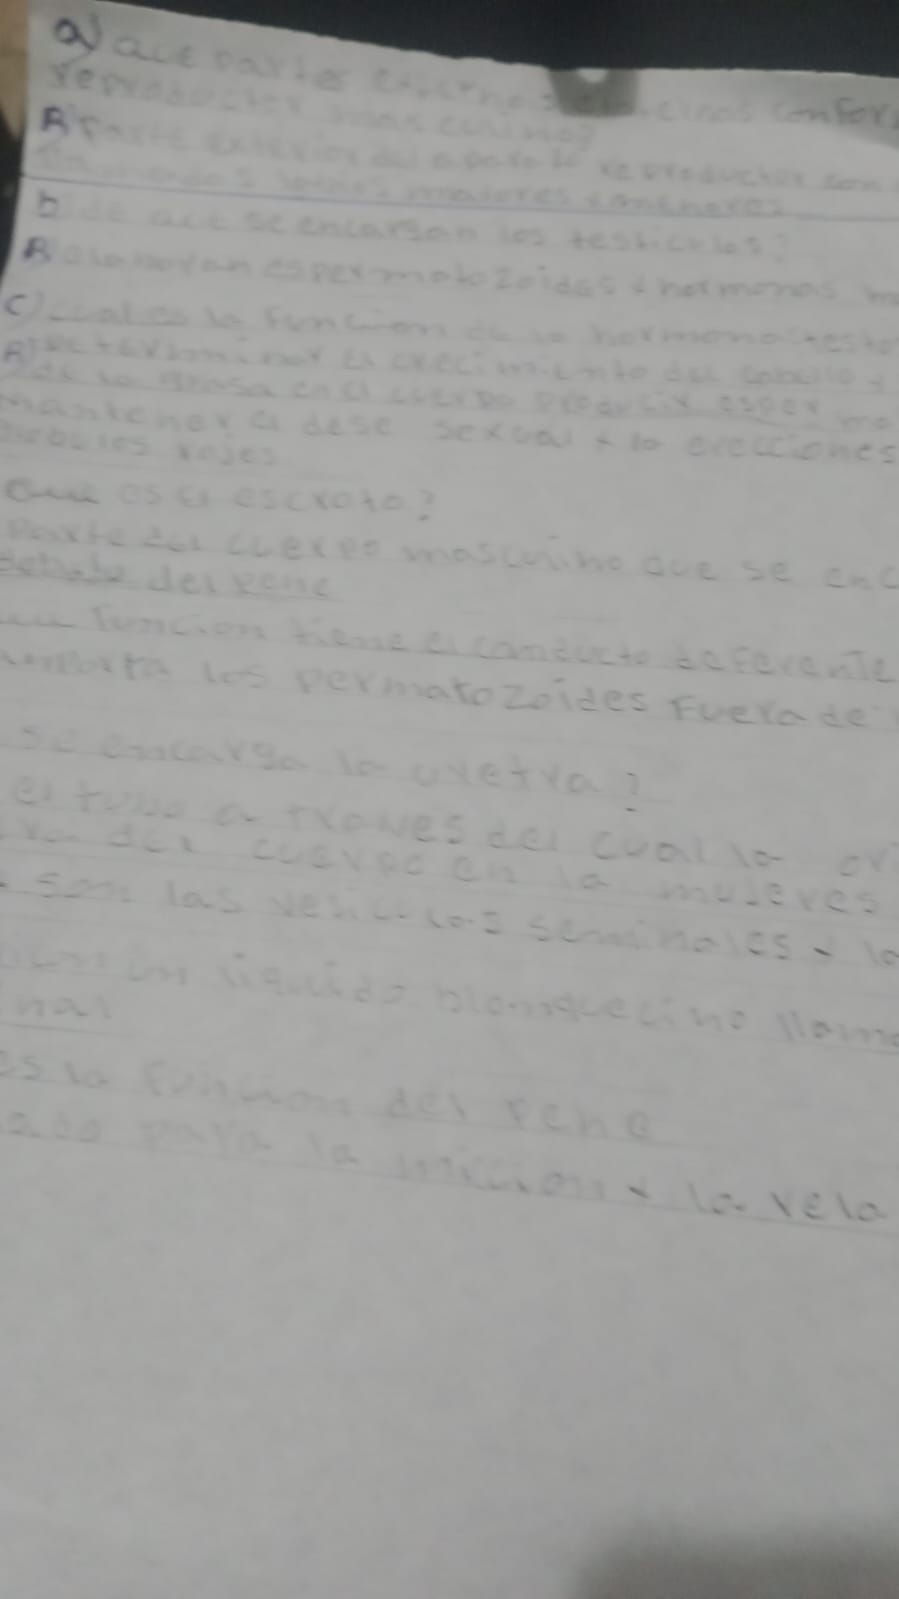 a) que partes externas confor
reproductor masculino?
R parte exterior del aparato reproductor son
labios mayores y menores
b de que se encargan los testiculos?
R elavoran espermatozoides y hormonas m
c) cual es la funcion de la hormona testo
R determinar el crecimiento del cabello y
de la grasa en el cuerpo producir esper ma
mantener el dese sexual y la erecciones
globulos rojos
Que es el escroto?
parte del cuerpo masculino que se enc
debajo del pene
funcion tiene el conducto deferente
los permatozoides Fuera de
se encarga la uretra?
el tubo a traves del cual la or
del cuerpo en la mujeres
son las vesiculas seminales y la
un liquido blanquecino llama
nal
es la funcion del pene
para la miccion y la rela